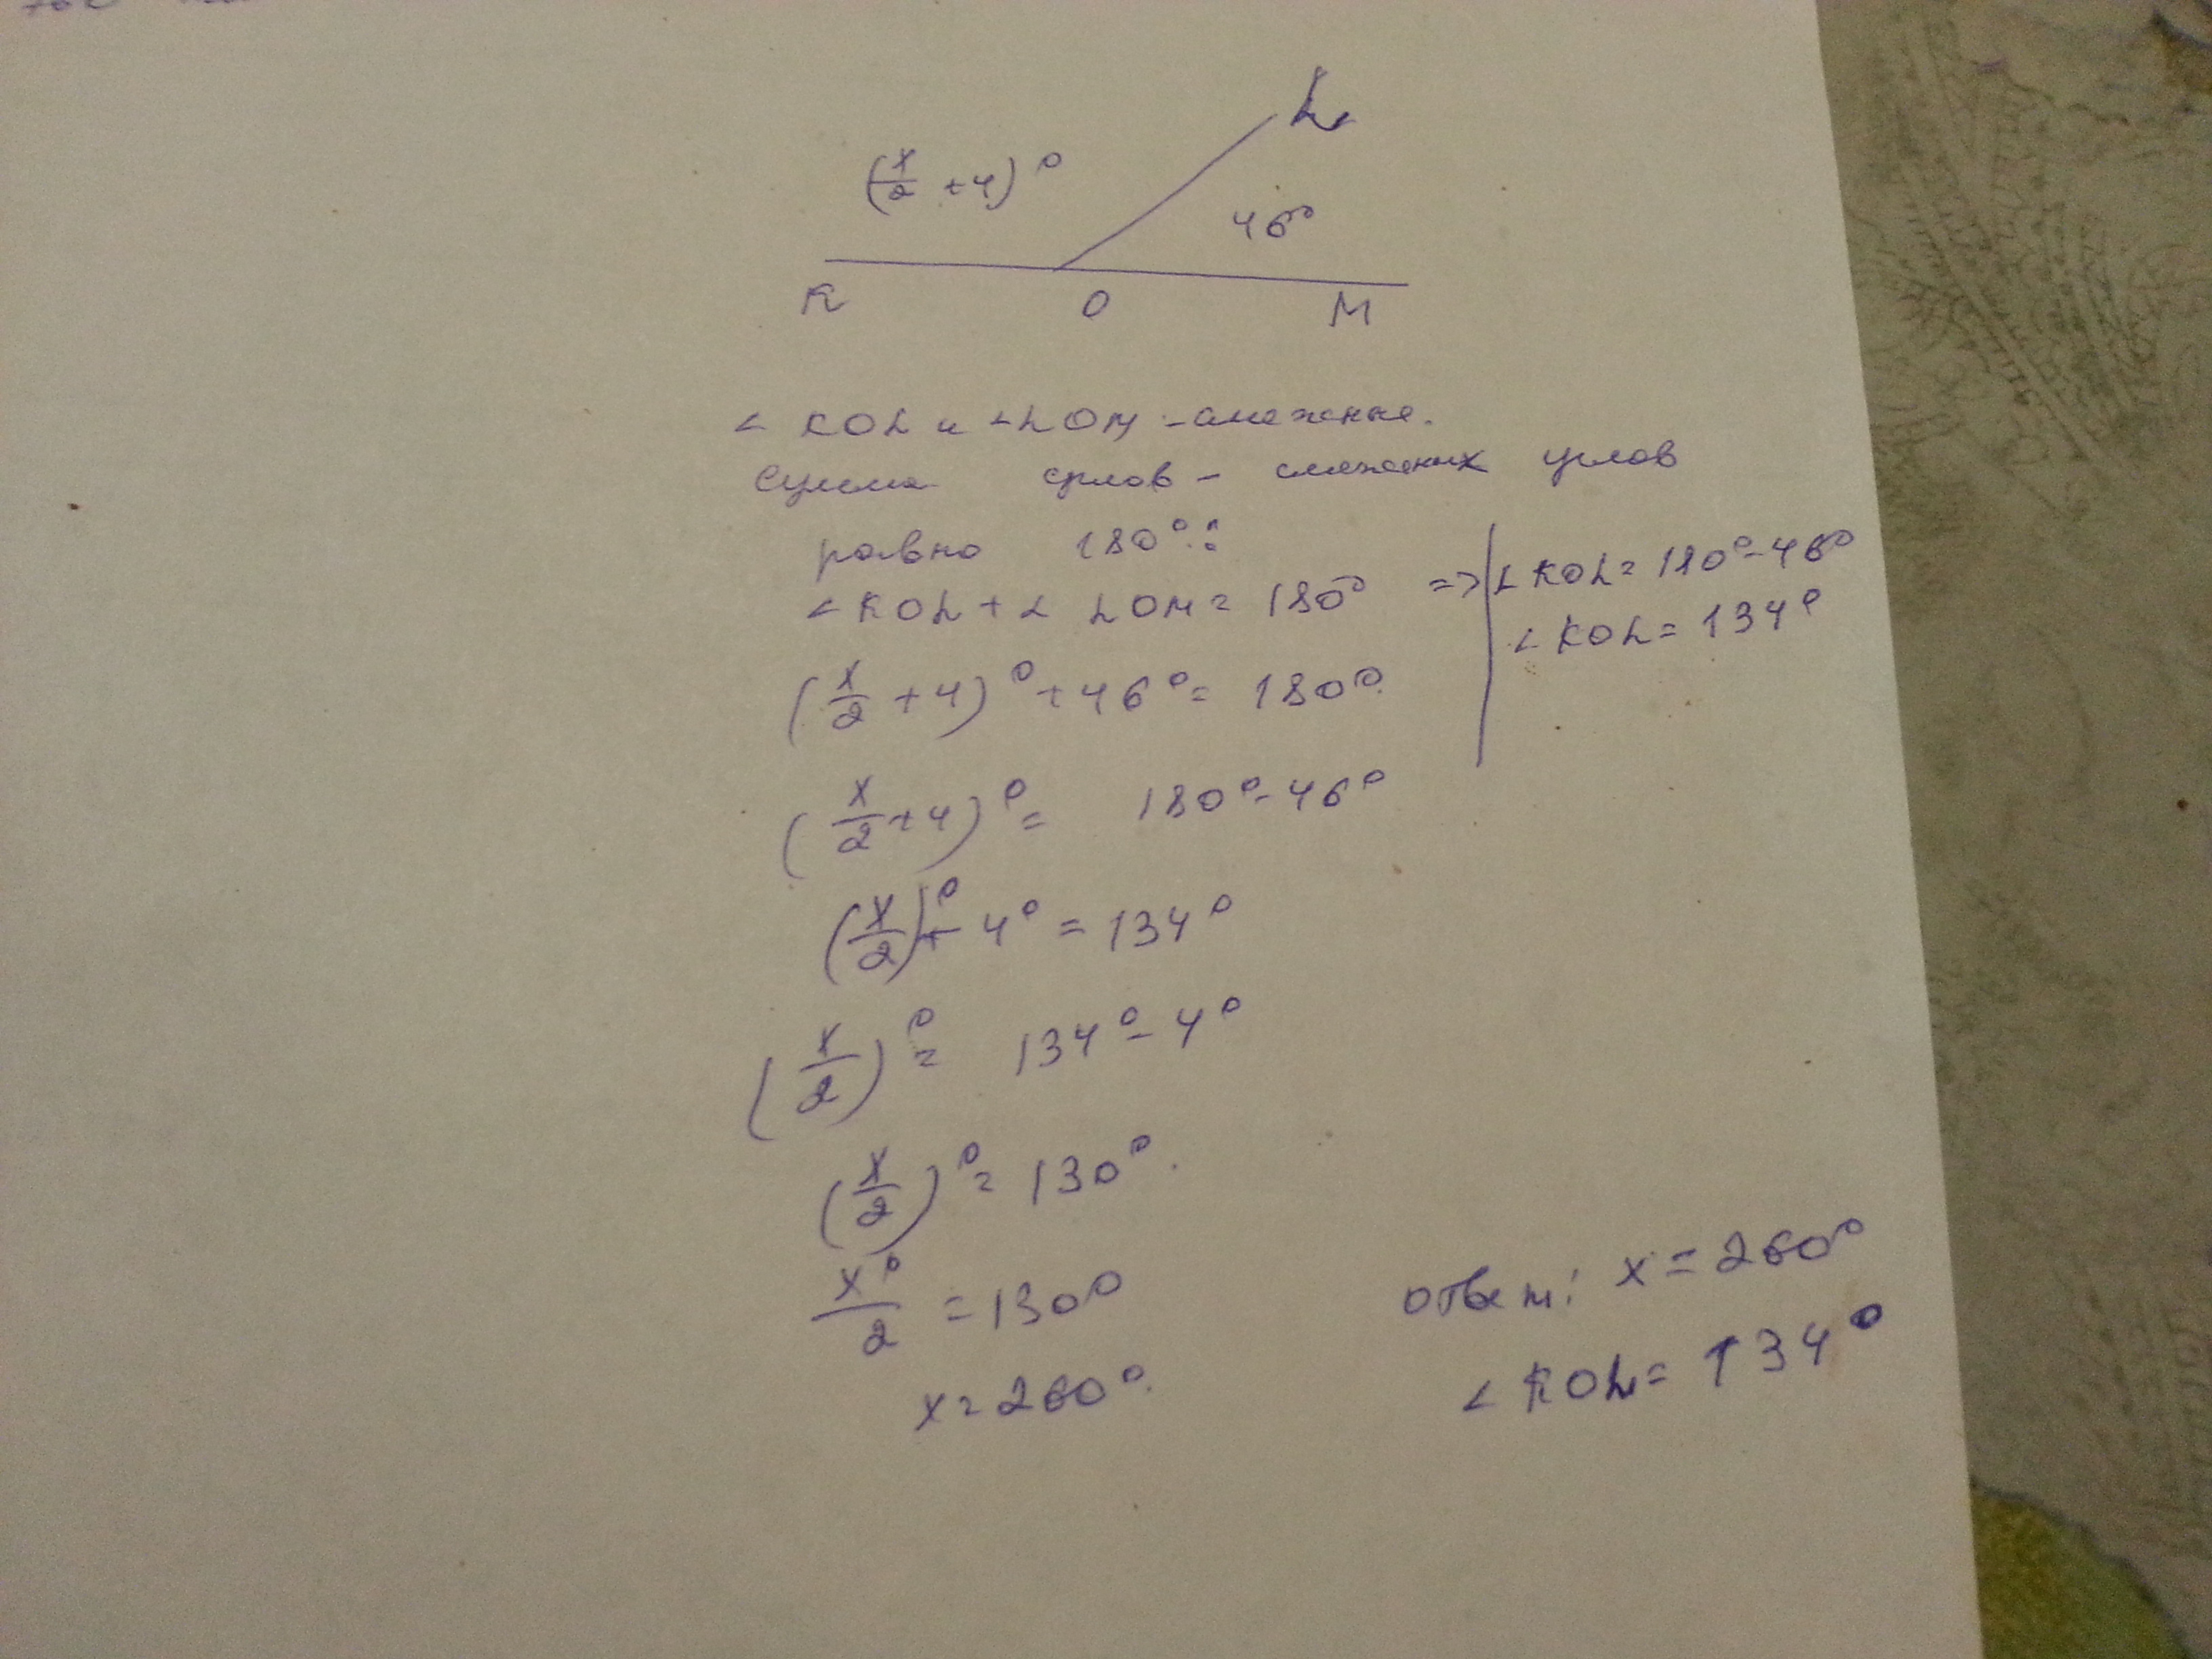 L
(x/2 + 4)°
46°
K O M
∠ KOL и ∠LOM - смежные.
Сумма - смежных углов
равно 180°:
∠KOL + ∠ LOM = 180° => ∠KOL = 180° - 46°
∠KOL = 134°
(x/2 + 4)° + 46° = 180°.
(x/2 + 4)° = 180° - 46°
(x/2)° + 4° = 134°
(x/2)° = 134° - 4°
(x/2)° = 130°.
x°/2 = 130°
x = 260°.
ответ: x = 260°
∠KOL = 134°